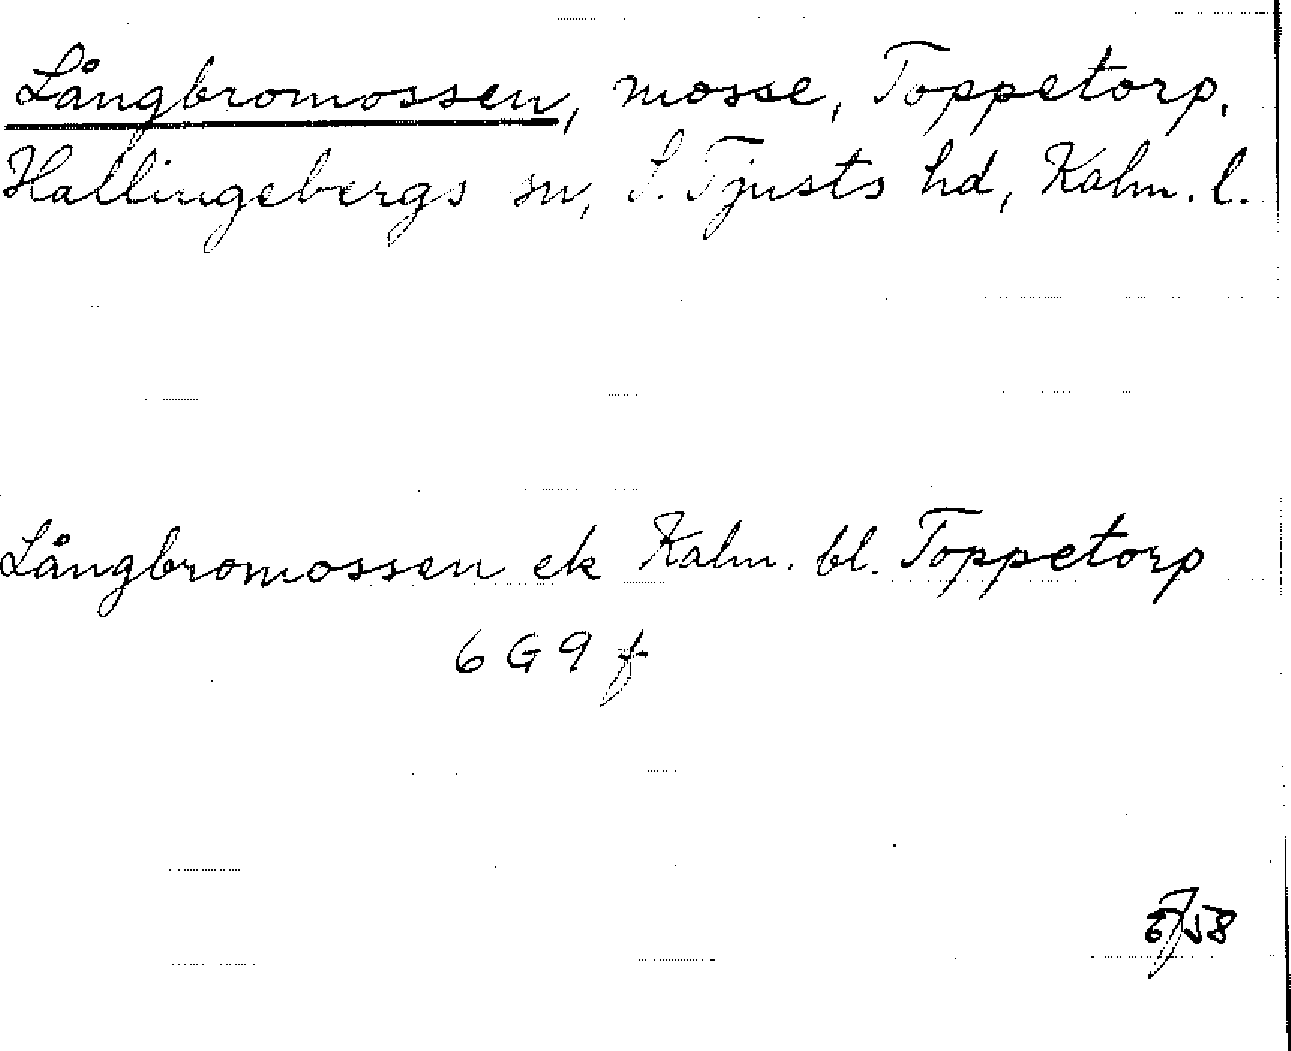 Långbromossen, mosse, Toppetorp,
Hallingebergs sn, S. Tjusts hd, Kalm. l.
Långbromossen ek Kalm. bl. Toppetorp
6 G 9 f